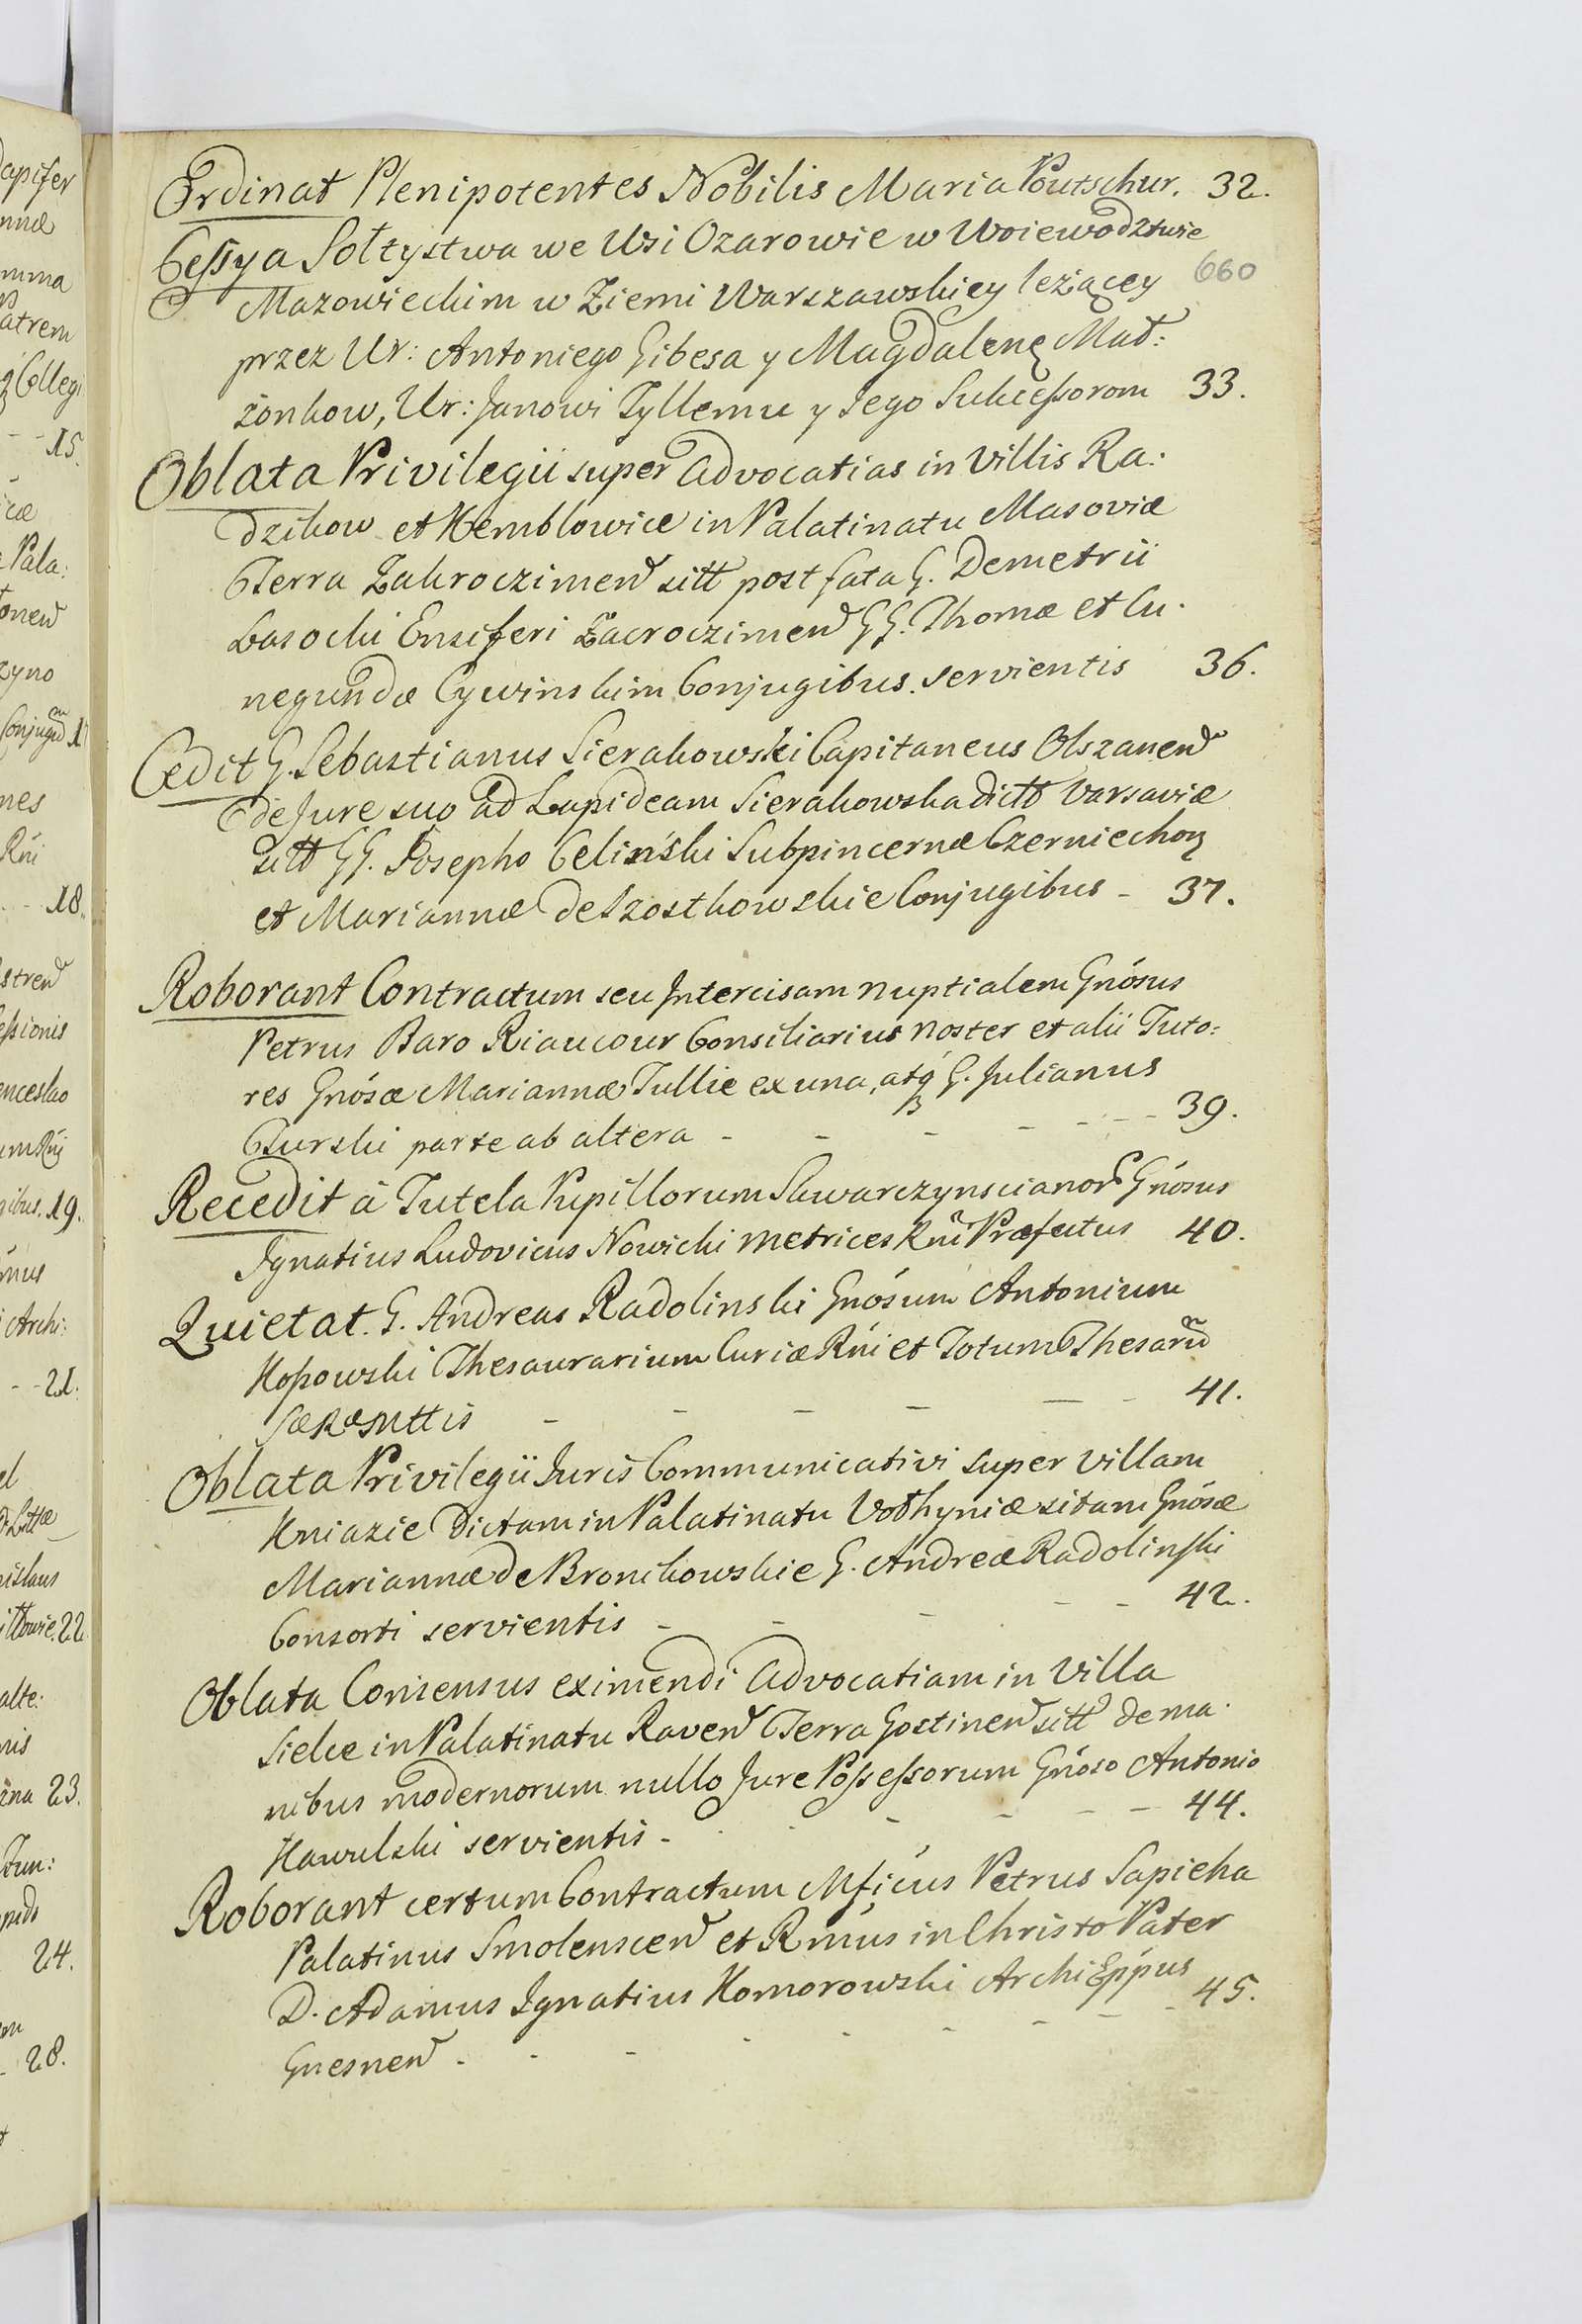 apifer
nnæ
mma
atrem
Colleg
- - 15.
icæ
Pala:
onen
zyno
Conjugum 1
nes
Rni
- - 18.
stren
essionis
enceslao
um Rni
gibus. 19.
mus
Archi:
- - 21.
el
Littæ
nislaus
ittowie. 22
alte:
nis
ina 23.
tun:
24.
- 28.
Ordinat Plenipotentes Nobilis Maria Poutschur. 32.
Cessya Sołtystwa we Wsi Ozarowie w Woiewodztwie
Mazowieckim w Ziemi Warszawskiey leżącey 660
przez Ur: Antoniego Gibesa y Magdalenę Mał:
żonkow, Ur: Janowi Tyllemu y Jego Sukcessorom 33.
Oblata Privilegii super Advocatias in Villis Ra:
dzikow et Kemblowice in Palatinatu Masoviæ
Terra Zakroczimen sitt post fata G. Demetrii
Lasocki Ensiferi Zacroczimen GG. Thomæ et Cu:
negundæ Cywinskim Conjugibus servientis 36.
Cedit G. Sebastianus Sierakowski Capitaneus Olszanen
de Jure suo ad Lapideam Sierakowska dictt Varsaviæ
sitt GG. Josepho Celiński Subpincernæ Czerniechow
et Mariannæ de Szostkowskie Conjugibus - 37.
Roborant Contractum seu Intercisam nuptialem Gnósus
Petrus Baro Riaucour Consiliarius noster et alii Tuto:
res Gnósæ Mariannæ Tullie ex una, atq G. Julianus
Turski parte ab altera - - - - - - - 39.
Recedit à Tutela Pupillorum Skwarczynscianor Gnósus
Ignatius Ludovicus Nowicki Metrices Rni Præfectus 40.
Quietat. G. Andreas Radolinski Gnósum Antonium
Kossowski Thesaurarium Curiæ Rni et Totum Thesarum
SæRæMttis - - - - - - 41.
Oblata Privilegii Juris Communicativi super Villam
Kniazie Dictam in Palatinatu Vołhyniæ sitam Gnósæ
Mariannæ de Bronikowskie G. Andreæ Radolinski
Consorti servientis - - - - - 42.
Oblata Consensus eximendi Advocatiam in Villa
Sielce in Palatinatu Raven Terra Gostinen sitt de ma:
nibus modernorum nullo Jure Possessorum Gnóso Antonio
Kawulski servientis - - - - - - 44.
Roborant certum Contractum Mficus Petrus Sapieha
Palatinus Smolenscen et Rmus in Christo Pater
D. Adamus Ignatius Komorowski ArchiEppus
Gnesnen - - - - - - - - 45.